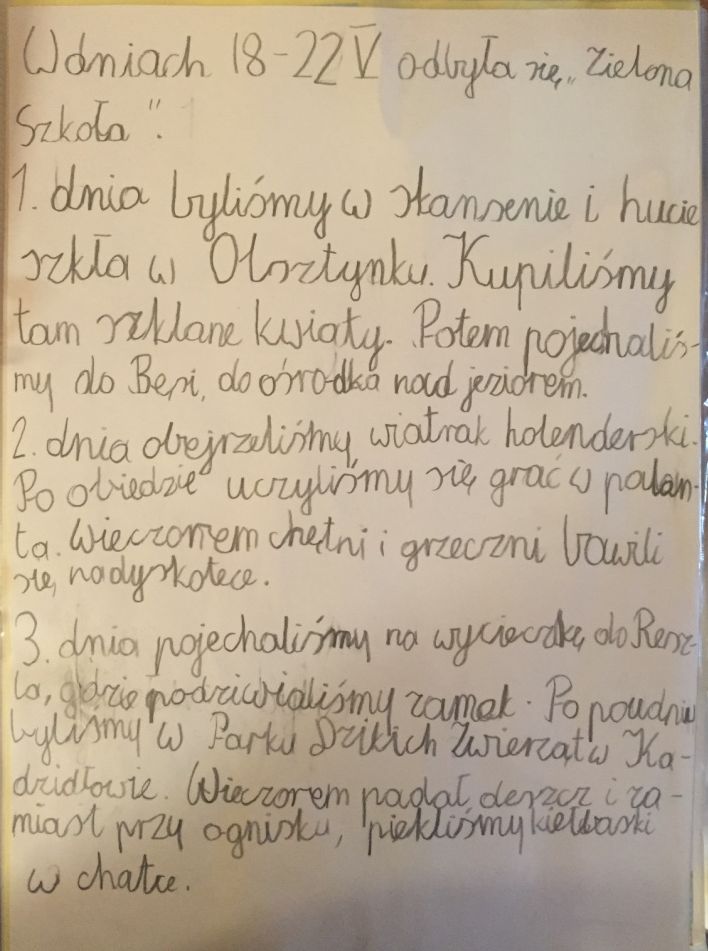 W dniach 18-22 V odbyła się „Zielona
Szkoła".
1. dnia byliśmy w skansenie i hucie
szkła w Olsztynku. Kupiliśmy
tam szklane kwiaty. Potem pojechaliś-
my do Bęsi, do ośrodka nad jeziorem.
2. dnia obejrzeliśmy wiatrak holenderski.
Po obiedzie uczyliśmy się grać w palan-
ta. Wieczorem chętni i grzeczni bawili
się na dyskotece.
3. dnia pojechaliśmy na wycieczkę do Resz-
la, gdzie podziwialiśmy zamek. Po poudniu
byliśmy w Parku Dzikich Zwierząt w Ka-
dzidłowie. Wieczorem padał deszcz i za-
miast przy ognisku, piekliśmy kiełbaski
w chatce.